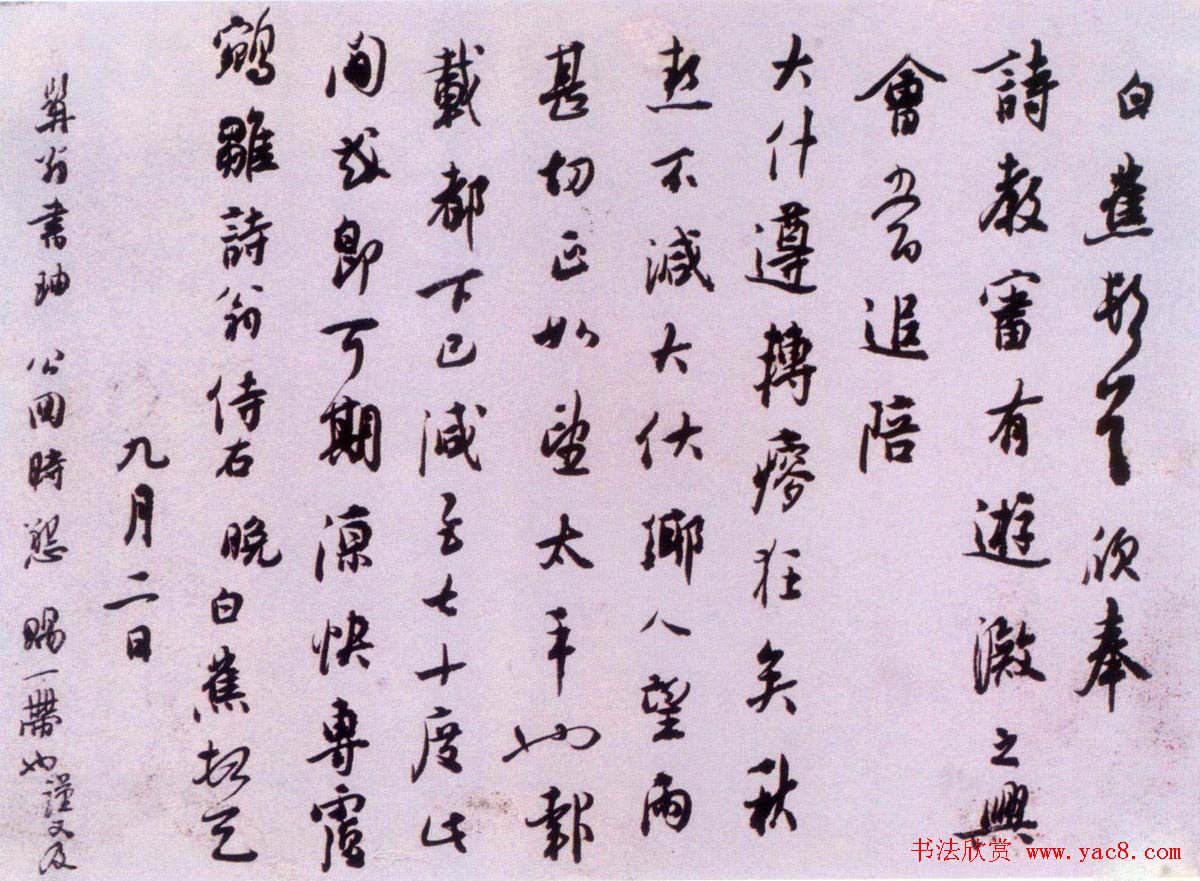 白蕉頓首欣奉
詩教審有遊澱之興
會當追陪
大什遵轉瘳狂矣秋
熱不減大伏鄉人望雨
甚切正如望太平也報
載都下已減至七十度此
間或即可期涼快專覆
鵷雛詩翁侍右 晚白蕉頓首
九月二日
算翁書 公回時懇 賜一帶也謹又及
书法欣赏 www.yac8.com